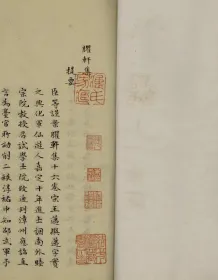 臞軒集
提要
臣等謹案臞軒集十六卷宋王邁撰邁字實
之興化軍仙遊人嘉定十年進士調南外睦
宗院教授召試學士院改通判漳州應詔直
言為臺官所劾削二秩淳祐中知邵武軍予